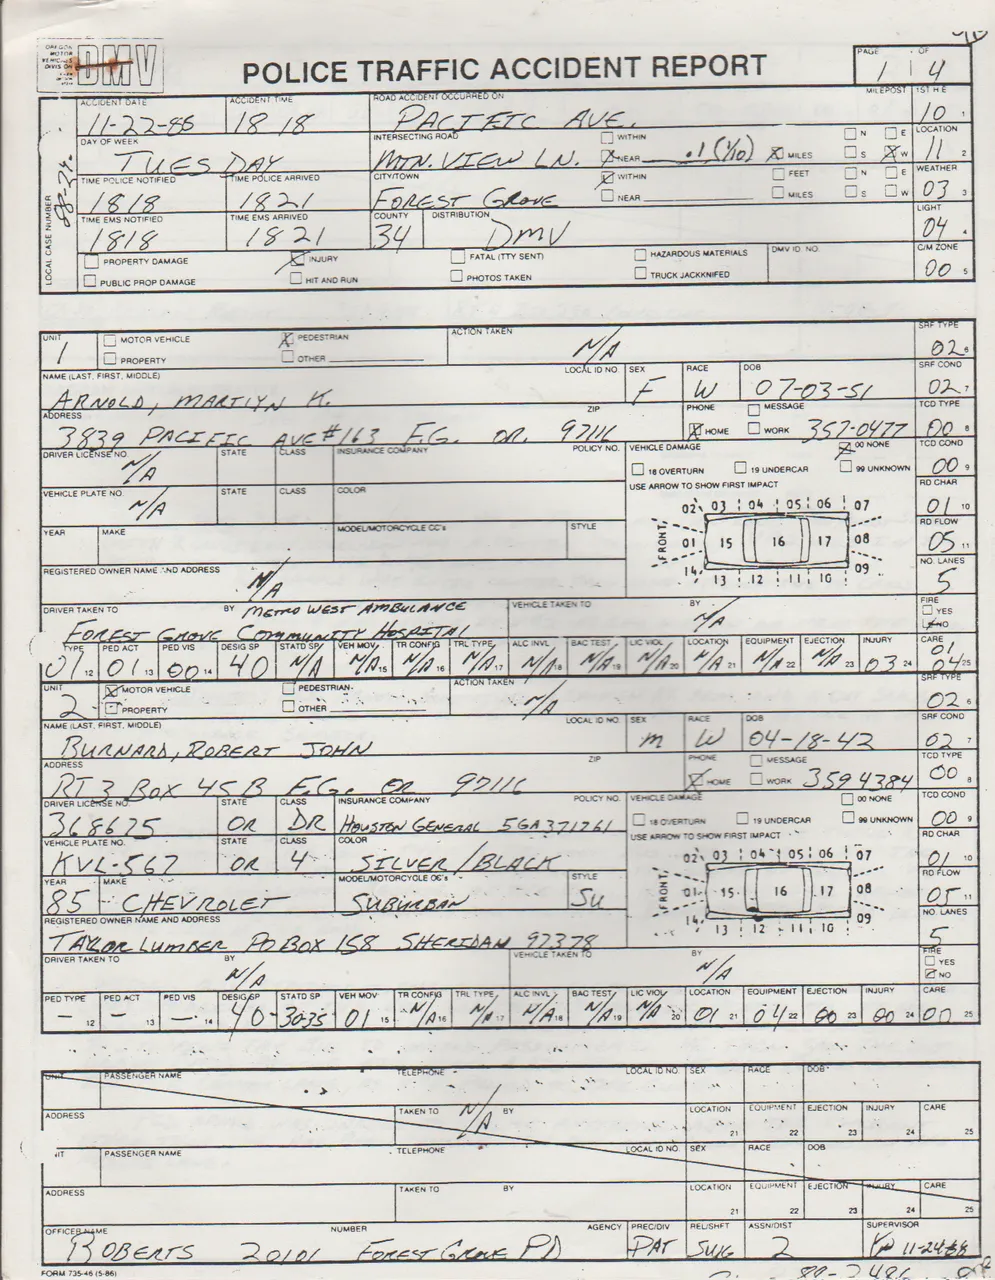 OREGON MOTOR VEHICLES DIVISION DMV
POLICE TRAFFIC ACCIDENT REPORT
PAGE 1 OF 4
ACCIDENT DATE 11-22-88 ACCIDENT TIME 1818 ROAD ACCIDENT OCCURRED ON PACIFIC AVE. MILEPOST 1ST H E 10 1
DAY OF WEEK TUESDAY INTERSECTING ROAD MTN. VIEW LN. WITHIN NEAR .1 (1/10) MILES N E S W LOCATION 11 2
TIME POLICE NOTIFIED 1818 TIME POLICE ARRIVED 1821 CITY/TOWN FOREST GROVE WITHIN NEAR FEET MILES N E S W WEATHER 03 3
TIME EMS NOTIFIED 1818 TIME EMS ARRIVED 1821 COUNTY 34 DISTRIBUTION DMV LIGHT 04 4
PROPERTY DAMAGE INJURY FATAL (TTY SENT) HAZARDOUS MATERIALS DMV ID. NO. C/M ZONE 00 5
PUBLIC PROP DAMAGE HIT AND RUN PHOTOS TAKEN TRUCK JACKKNIFED
LOCAL CASE NUMBER
UNIT 1 MOTOR VEHICLE PEDESTRIAN ACTION TAKEN N/A SRF TYPE 02 6
PROPERTY OTHER
NAME (LAST, FIRST, MIDDLE) ARNOLD, MARILYN K. LOCAL ID NO. SEX F RACE W DOB 07-03-51 SRF COND 02 7
ADDRESS 3839 PACIFIC AVE #163 F.G. OR. ZIP 97116 PHONE MESSAGE HOME WORK 357-0477 TCD TYPE 00 8
DRIVER LICENSE NO. N/A STATE CLASS INSURANCE COMPANY POLICY NO. VEHICLE DAMAGE 00 NONE TCD COND 00 9
18 OVERTURN 19 UNDERCAR 99 UNKNOWN
VEHICLE PLATE NO. N/A STATE CLASS COLOR USE ARROW TO SHOW FIRST IMPACT RD CHAR 01 10
02 03 04 05 06 07
YEAR MAKE MODEL/MOTORCYCLE CC's STYLE FRONT 01 15 16 17 08 RD FLOW 05 11
14 13 12 11 10 09
REGISTERED OWNER NAME AND ADDRESS N/A NO. LANES 5
DRIVER TAKEN TO FOREST GROVE COMMUNITY HOSPITAL BY METRO WEST AMBULANCE VEHICLE TAKEN TO BY N/A FIRE YES NO
TYPE 01 12 PED ACT 01 13 PED VIS 00 14 DESIG SP 40 STATD SP N/A VEH MOV N/A 15 TR CONFIG N/A 16 TRL TYPE N/A 17 ALC INVL N/A 18 BAC TEST N/A 19 LIC VIOL N/A 20 LOCATION N/A 21 EQUIPMENT N/A 22 EJECTION N/A 23 INJURY 03 24 CARE 01 04 25
UNIT 2 MOTOR VEHICLE PEDESTRIAN ACTION TAKEN N/A SRF TYPE 02 6
PROPERTY OTHER
NAME (LAST, FIRST, MIDDLE) BURNARD, ROBERT JOHN LOCAL ID NO. SEX M RACE W DOB 04-18-42 SRF COND 02 7
ADDRESS RT 3 BOX 45 B F.G. OR ZIP 97116 PHONE MESSAGE HOME WORK 359 4384 TCD TYPE 00 8
DRIVER LICENSE NO. 368675 STATE OR CLASS DR INSURANCE COMPANY HOUSTON GENERAL POLICY NO. 5GA371761 VEHICLE DAMAGE 00 NONE TCD COND 00 9
18 OVERTURN 19 UNDERCAR 99 UNKNOWN
VEHICLE PLATE NO. KVL-567 STATE OR CLASS 4 COLOR SILVER/BLACK USE ARROW TO SHOW FIRST IMPACT RD CHAR 01 10
02 03 04 05 06 07
YEAR 85 MAKE CHEVROLET MODEL/MOTORCYCLE CC's SUBURBAN STYLE SU FRONT 01 15 16 17 08 RD FLOW 05 11
14 13 12 11 10 09
REGISTERED OWNER NAME AND ADDRESS TAYLOR LUMBER PO BOX 158 SHERIDAN 97378 NO. LANES 5
DRIVER TAKEN TO BY N/A VEHICLE TAKEN TO BY N/A FIRE YES NO
PED TYPE - 12 PED ACT - 13 PED VIS - 14 DESIG SP 40 STATD SP 30-35 VEH MOV 01 15 TR CONFIG N/A 16 TRL TYPE N/A 17 ALC INVL N/A 18 BAC TEST N/A 19 LIC VIOL N/A 20 LOCATION 01 21 EQUIPMENT 04 22 EJECTION 00 23 INJURY 00 24 CARE 00 25
UNIT PASSENGER NAME TELEPHONE LOCAL ID NO. SEX RACE DOB
ADDRESS TAKEN TO N/A BY LOCATION 21 EQUIPMENT 22 EJECTION 23 INJURY 24 CARE 25
PASSENGER NAME TELEPHONE LOCAL ID NO. SEX RACE DOB
ADDRESS TAKEN TO BY LOCATION 21 EQUIPMENT 22 EJECTION 23 INJURY 24 CARE 25
OFFICER NAME ROBERTS NUMBER 20101 AGENCY FOREST GROVE PD PREC/DIV PAT REL/SHFT SWG ASSN/DIST 2 SUPERVISOR 11-24-88
FORM 735-46 (5-86)